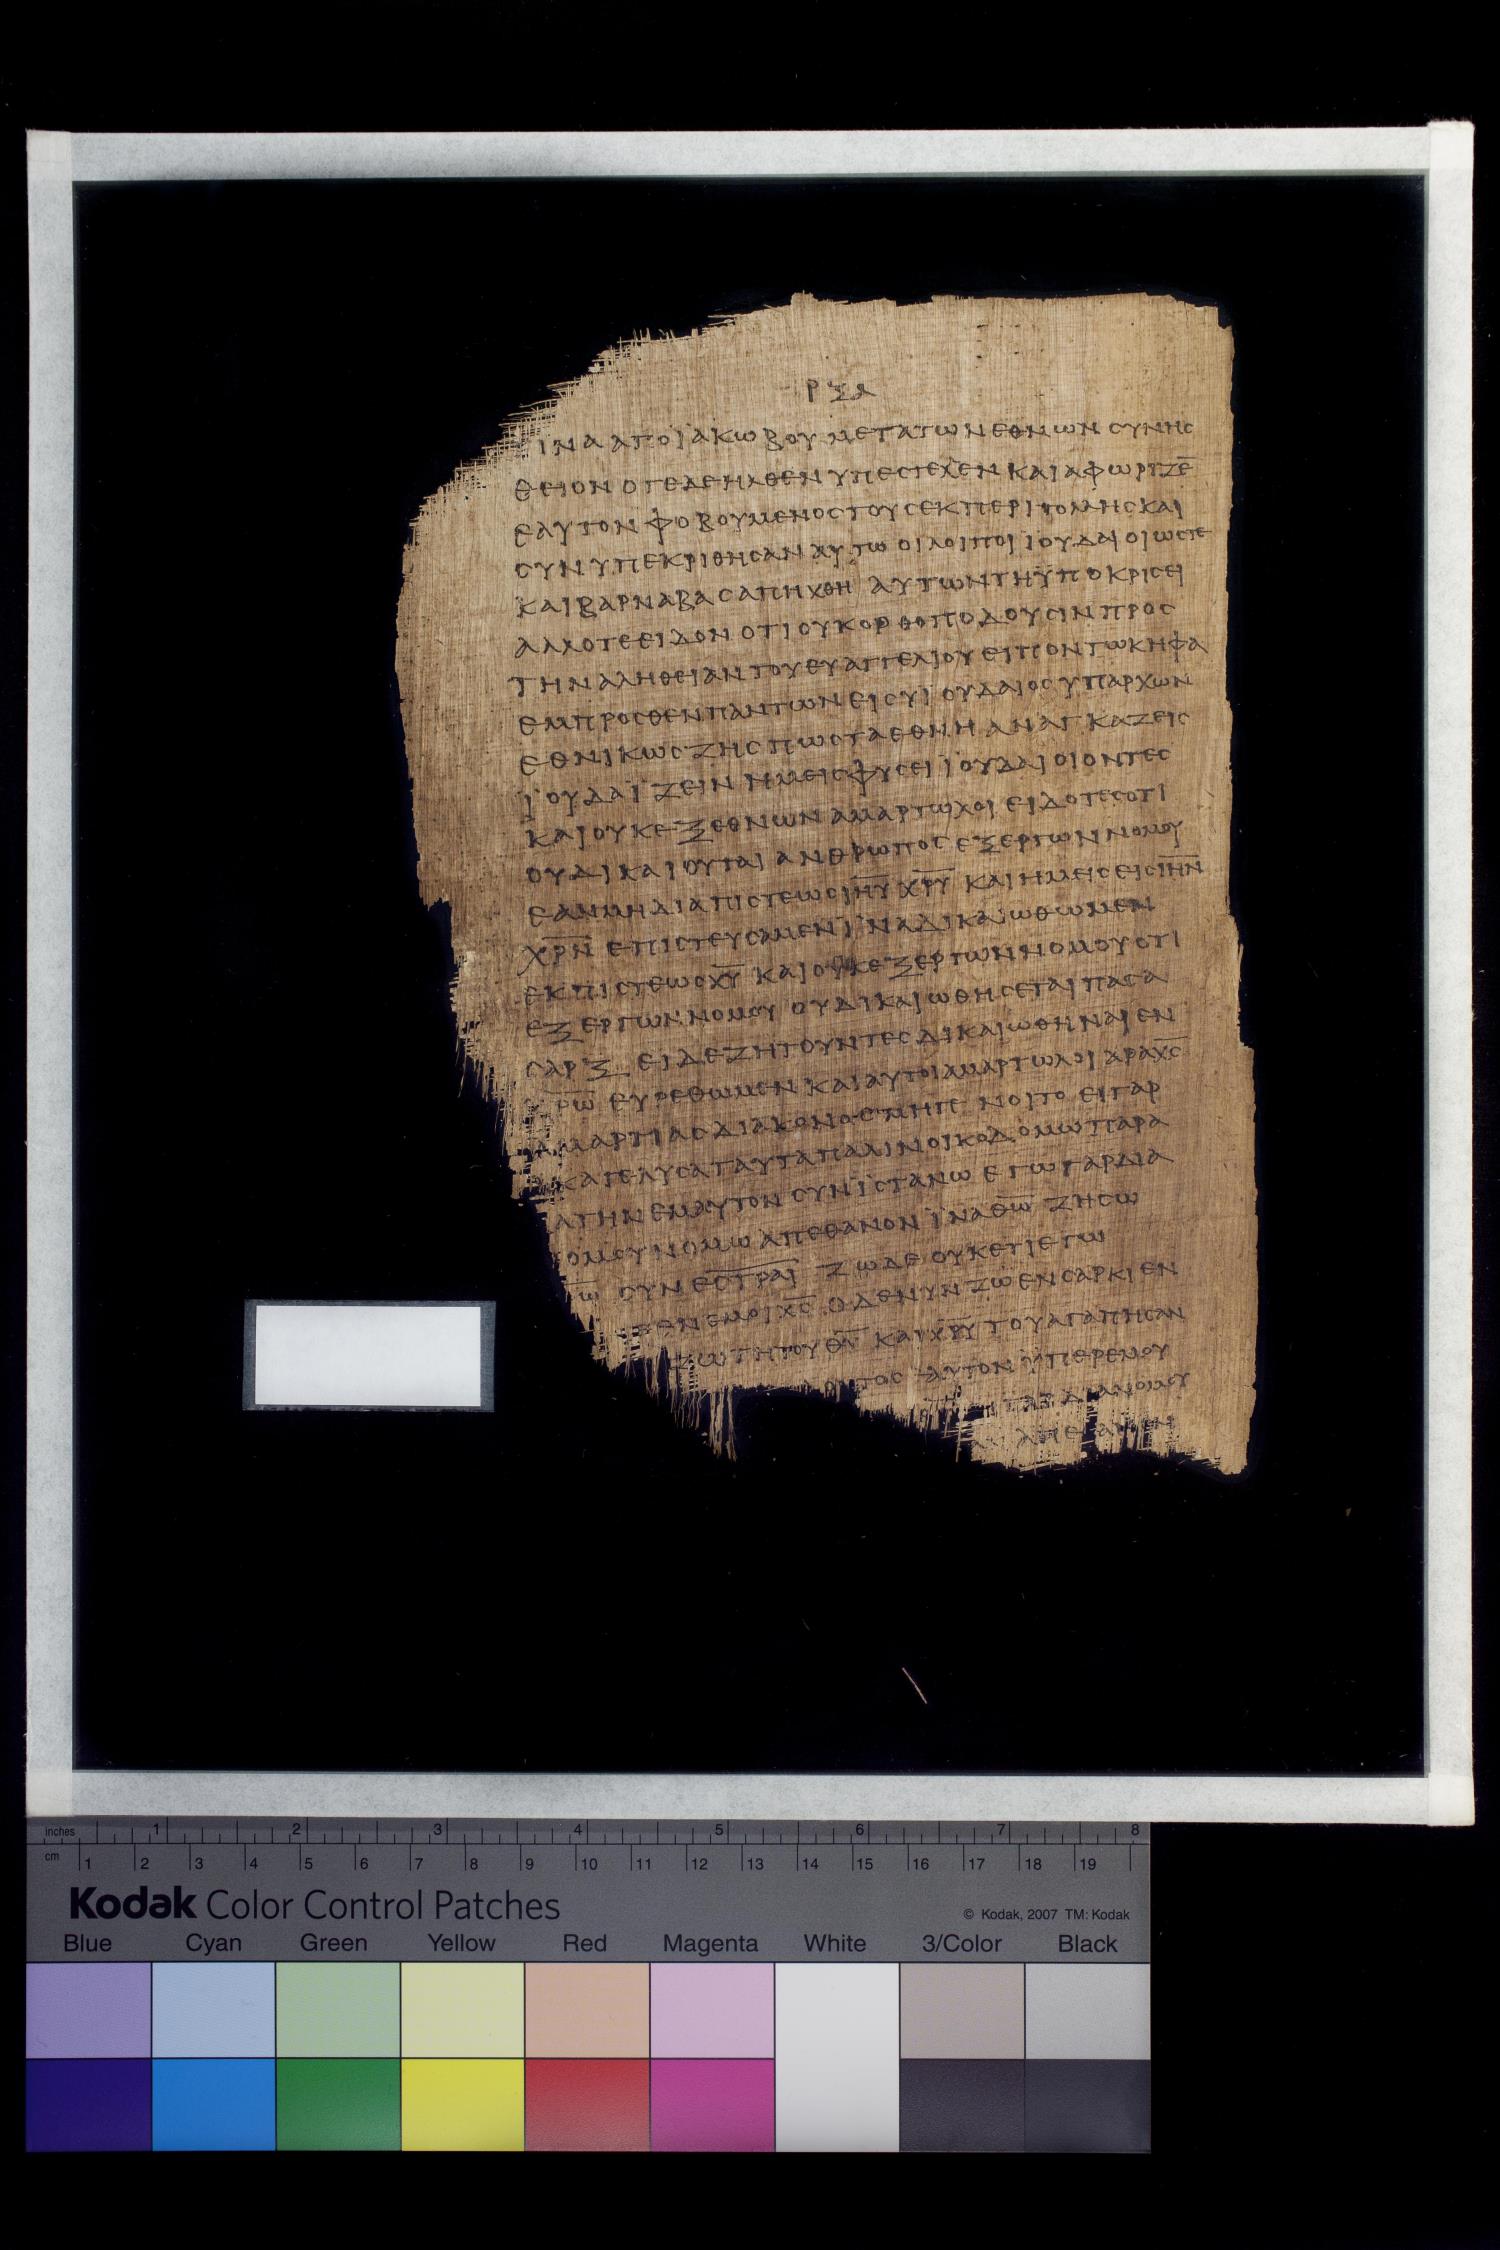 ΡΞΑ
ΤΙΝΑ ΑΠΟ ΪΑΚΩΒΟΥ ΜΕΤΑ ΤΩΝ ΕΘΝΩΝ ΣΥΝΗΣ
ΘΕΙΟΝ ΟΤΕ ΔΕ ΗΛΘΕΝ ΥΠΕΣΤΕΛΕΝ ΚΑΙ ΑΦΩΡΙΖΕ̅
ΕΑΥΤΟΝ ΦΟΒΟΥΜΕΝΟΣ ΤΟΥΣ ΕΚ ΠΕΡΙΤΟΜΗΣ ΚΑΙ
ΣΥΝΥΠΕΚΡΙΘΗΣΑΝ ΑΥΤΩ ΟΙ ΛΟΙΠΟΙ ΪΟΥΔΑΙΟΙ ΩΣΤΕ
ΚΑΙ ΒΑΡΝΑΒΑΣ ΑΠΗΧΘΗ ΑΥΤΩΝ ΤΗ ΫΠΟΚΡΙΣΕΙ
ΑΛΛ ΟΤΕ ΕΙΔΟΝ ΟΤΙ ΟΥΚ ΟΡΘΟΠΟΔΟΥΣΙΝ ΠΡΟΣ
ΤΗΝ ΑΛΗΘΕΙΑΝ ΤΟΥ ΕΥΑΓΓΕΛΙΟΥ ΕΙΠΟΝ ΤΩ ΚΗΦΑ
ΕΜΠΡΟΣΘΕΝ ΠΑΝΤΩΝ ΕΙ ΣΥ ΙΟΥΔΑΙΟΣ ΥΠΑΡΧΩΝ
ΕΘΝΙΚΩΣ ΖΗΣ ΠΩΣ ΤΑ ΕΘΝΗ ΑΝΑΓΚΑΖΕΙΣ
ΪΟΥΔΑΪΖΕΙΝ ΗΜΕΙΣ ΦΥΣΕΙ ΪΟΥΔΑΙΟΙ ΟΝΤΕΣ
ΚΑΙ ΟΥΚ ΕΞ ΕΘΝΩΝ ΑΜΑΡΤΩΛΟΙ ΕΙΔΟΤΕΣ ΟΤΙ
ΟΥ ΔΙΚΑΙΟΥΤΑΙ ΑΝΘΡΩΠΟΣ ΕΞ ΕΡΓΩΝ ΝΟΜΟΥ
ΕΑΝ ΜΗ ΔΙΑ ΠΙΣΤΕΩΣ Ι̅Η̅Υ̅ Χ̅Ρ̅Υ̅ ΚΑΙ ΗΜΕΙΣ ΕΙΣ Ι̅Η̅Ν̅
Χ̅Ρ̅Ν̅ ΕΠΙΣΤΕΥΣΑΜΕΝ ΪΝΑ ΔΙΚΑΙΩΘΩΜΕΝ
ΕΚ ΠΙΣΤΕΩΣ Χ̅Υ̅ ΚΑΙ ΟΥΚ ΕΞ ΕΡΓΩΝ ΝΟΜΟΥ ΟΤΙ
ΕΞ ΕΡΓΩΝ ΝΟΜΟΥ ΟΥ ΔΙΚΑΙΩΘΗΣΕΤΑΙ ΠΑΣΑ
ΣΑΡΞ ΕΙ ΔΕ ΖΗΤΟΥΝΤΕΣ ΔΙΚΑΙΩΘΗΝΑΙ ΕΝ
Ρ̅Ω̅ ΕΥΡΕΘΩΜΕΝ ΚΑΙ ΑΥΤΟΙ ΑΜΑΡΤΩΛΟΙ ΑΡΑ Χ̅Σ̅
ΑΜΑΡΤΙΑΣ ΔΙΑΚΟΝΟΣ ΜΗ ΓΕΝΟΙΤΟ ΕΙ ΓΑΡ
ΚΑΤΕΛΥΣΑ ΤΑΥΤΑ ΠΑΛΙΝ ΟΙΚΟΔΟΜΩ ΠΑΡΑ
ΑΤΗΝ ΕΜΑΥΤΟΝ ΣΥΝΪΣΤΑΝΩ ΕΓΩ ΓΑΡ ΔΙΑ
ΟΜΟΥ ΝΟΜΩ ΑΠΕΘΑΝΟΝ ΪΝΑ Θ̅Ω̅ ΖΗΣΩ
Ω̅ ΣΥΝΕΣ̅Τ̅Ρ̅Α̅Ι̅ ΖΩ ΔΕ ΟΥΚΕΤΙ ΕΓΩ
ΕΝ ΕΜΟΙ Χ̅Σ̅ Ο ΔΕ ΝΥΝ ΖΩ ΕΝ ΣΑΡΚΙ ΕΝ
ΖΩ ΤΗ ΤΟΥ Θ̅Υ̅ ΚΑΙ Χ̅Ρ̅Υ̅ ΤΟΥ ΑΓΑΠΗΣΑΝ
ΟΝΤΟΣ ΑΥΤΟΝ ΫΠΕΡ ΕΜΟΥ
ΔΙΑ ΝΟΜΟΥ
ΑΠΕΘΑΝΕΝ